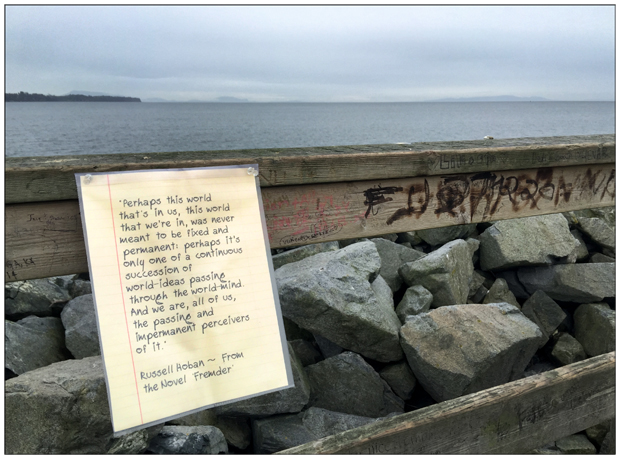 'Perhaps this world
that's in us, this world
that we're in, was never
meant to be fixed and
permanent: perhaps it's
only one of a continuous
succession of
world-ideas passing
through the world-mind.
And we are, all of us,
the passing and
impermanent perceivers
of it.'
Russell Hoban ~ From
the Novel 'Fremder'